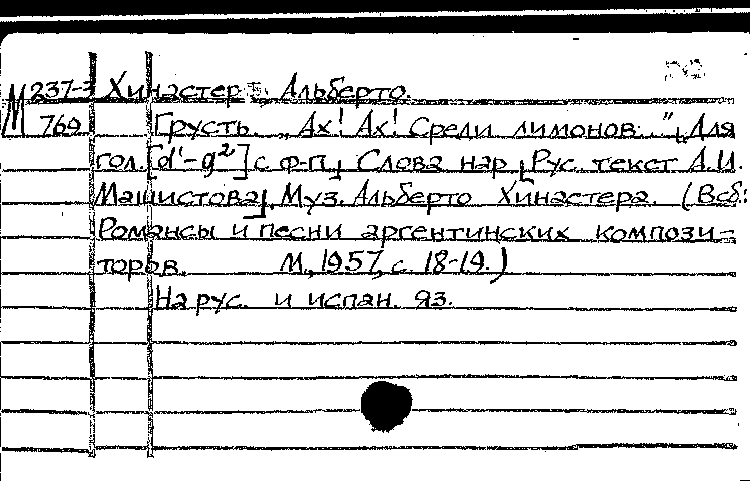 М 237-3 Хинастера, Альберто.
769 Грусть. „Ах! Ах! Среди лимонов..." Для
гол. [d'-g²] с ф-п. Слова нар., Рус. текст А.И.
Машистова, Муз. Альберто Хинастера. (В сб.:
Романсы и песни аргентинских компози-
торов. М., 1957, с. 18-19.)
На рус. и испан. яз.